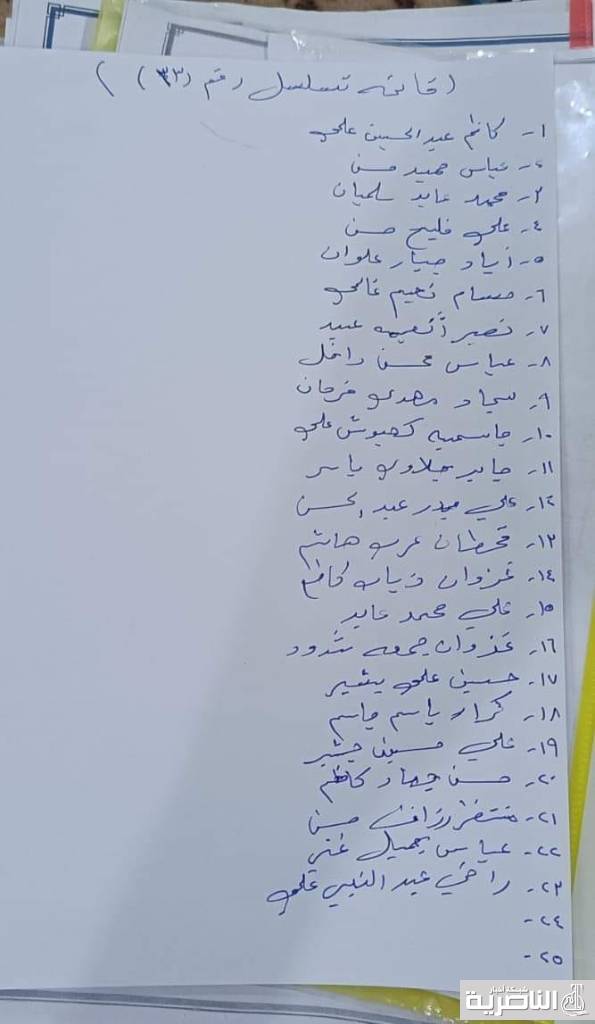 ( قائمة تسلسل رقم (٣٣) )
١- كاظم عبد الحسين علي
٢- عباس حميد حسن
٣- محمد عايد سلمان
٤- علي فليح حسن
٥- زياد جبار علوان
٦- حسام نعيم غالي
٧- نصير نعيمه عبيد
٨- عباس محسن داخل
٩- سجاد مهدي فرحان
١٠- جاسميه كهيوش علي
١١- جابر جلاوي ياسر
١٢- علي حيدر عبد الحسن
١٣- قحطان عرب هاشم
١٤- غزوان ذياب كاظم
١٥- علي محمد عايد
١٦- غزوان جمعه شدود
١٧- حسين علي بشير
١٨- كرار باسم جاسم
١٩- علي حسين چثير
٢٠- حسن جهاد كاظم
٢١- منتظر رزاق حسن
٢٢- عباس جميل غني
٢٣- راضي عبد النبي علي
٢٤-
٢٥-
شبكة أخبار
الناصرية